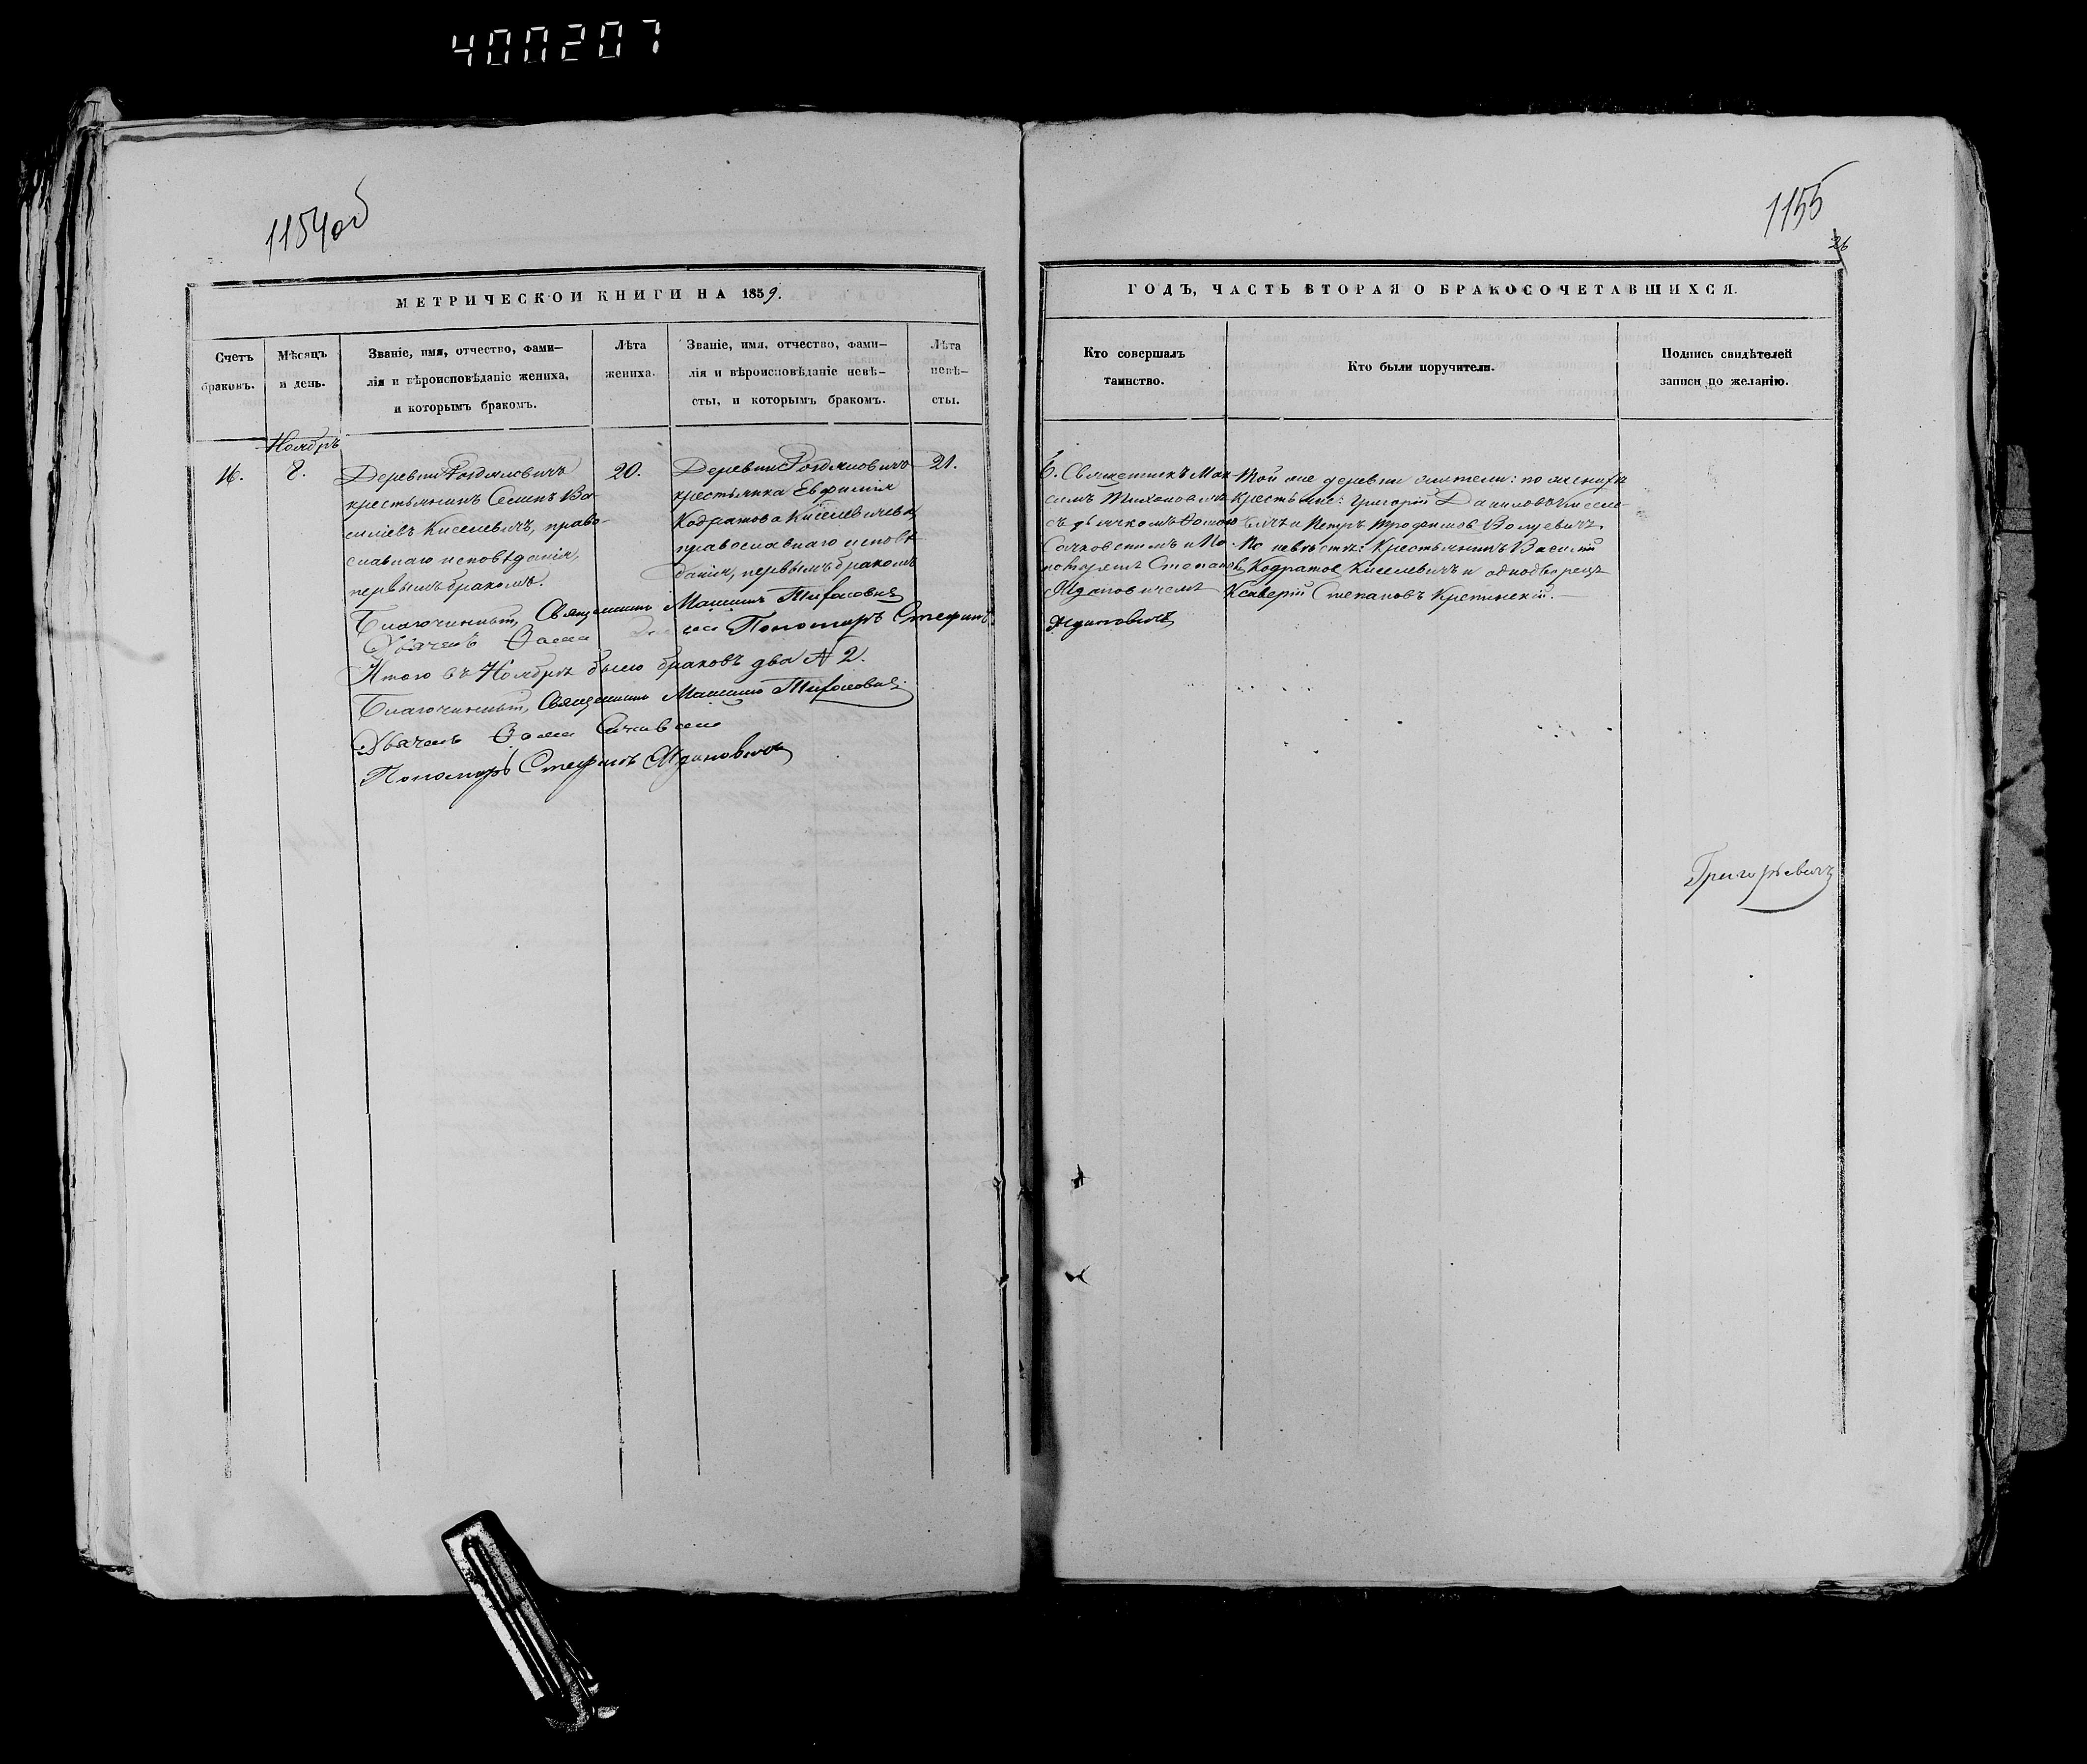 400207
1154об
МЕТРИЧЕСКОЙ КНИГИ НА 1859.
Счетъ браковъ.
Мѣсяцъ и день.
Званіе, имя, отчество, фами-
лія и вѣроисповѣданіе жениха,
и которымъ бракомъ.
Лѣта
жениха.
Званіе, имя, отчество, фами-
лія и вѣроисповѣданіе невѣ-
сты, и которымъ бракомъ.
Лѣта
невѣ-
сты.
Ноябрь
16.
8.
Деревни
крестьянинъ Семенъ Ва-
силіевъ Киселевичъ, право-
славнаго исповѣданія,
первымъ бракомъ.
20.
Деревни
крестьянка Евфимія
Кодратова Киселевичева,
православнаго исповѣ-
данія, первымъ бракомъ
21.
Благочинный, Священникъ Максимъ
Дьячекъ Фома Пономарь Стефанъ
Итого въ Ноябрѣ было браковъ два № 2.
Благочинный, Священникъ Максимъ
Дьячекъ Фома
Пономарь Стефанъ Ждановичъ
1155
26
ГОДЪ, ЧАСТЬ ВТОРАЯ О БРАКОСОЧЕТАВШИХСЯ.
Кто совершалъ
таинство.
Кто были поручители.
Подпись свидѣтелей
записи по желанію.
Священникъ Мак-
симъ
съ дьячкомъ Фомою
и По-
номаремъ Степаномъ
Ждановичемъ
Ждановичъ
Той же деревни жители: по женихѣ
Крестьяне: Григорій Даниловъ Кисел-
евичъ и Петръ Трофимовъ Волуевичъ
По невѣстѣ: Крестьянинъ Василій
Кодратов Киселевичъ и однодворецъ
Ксаверій Степановъ Крепинскій.
Григорьевичъ